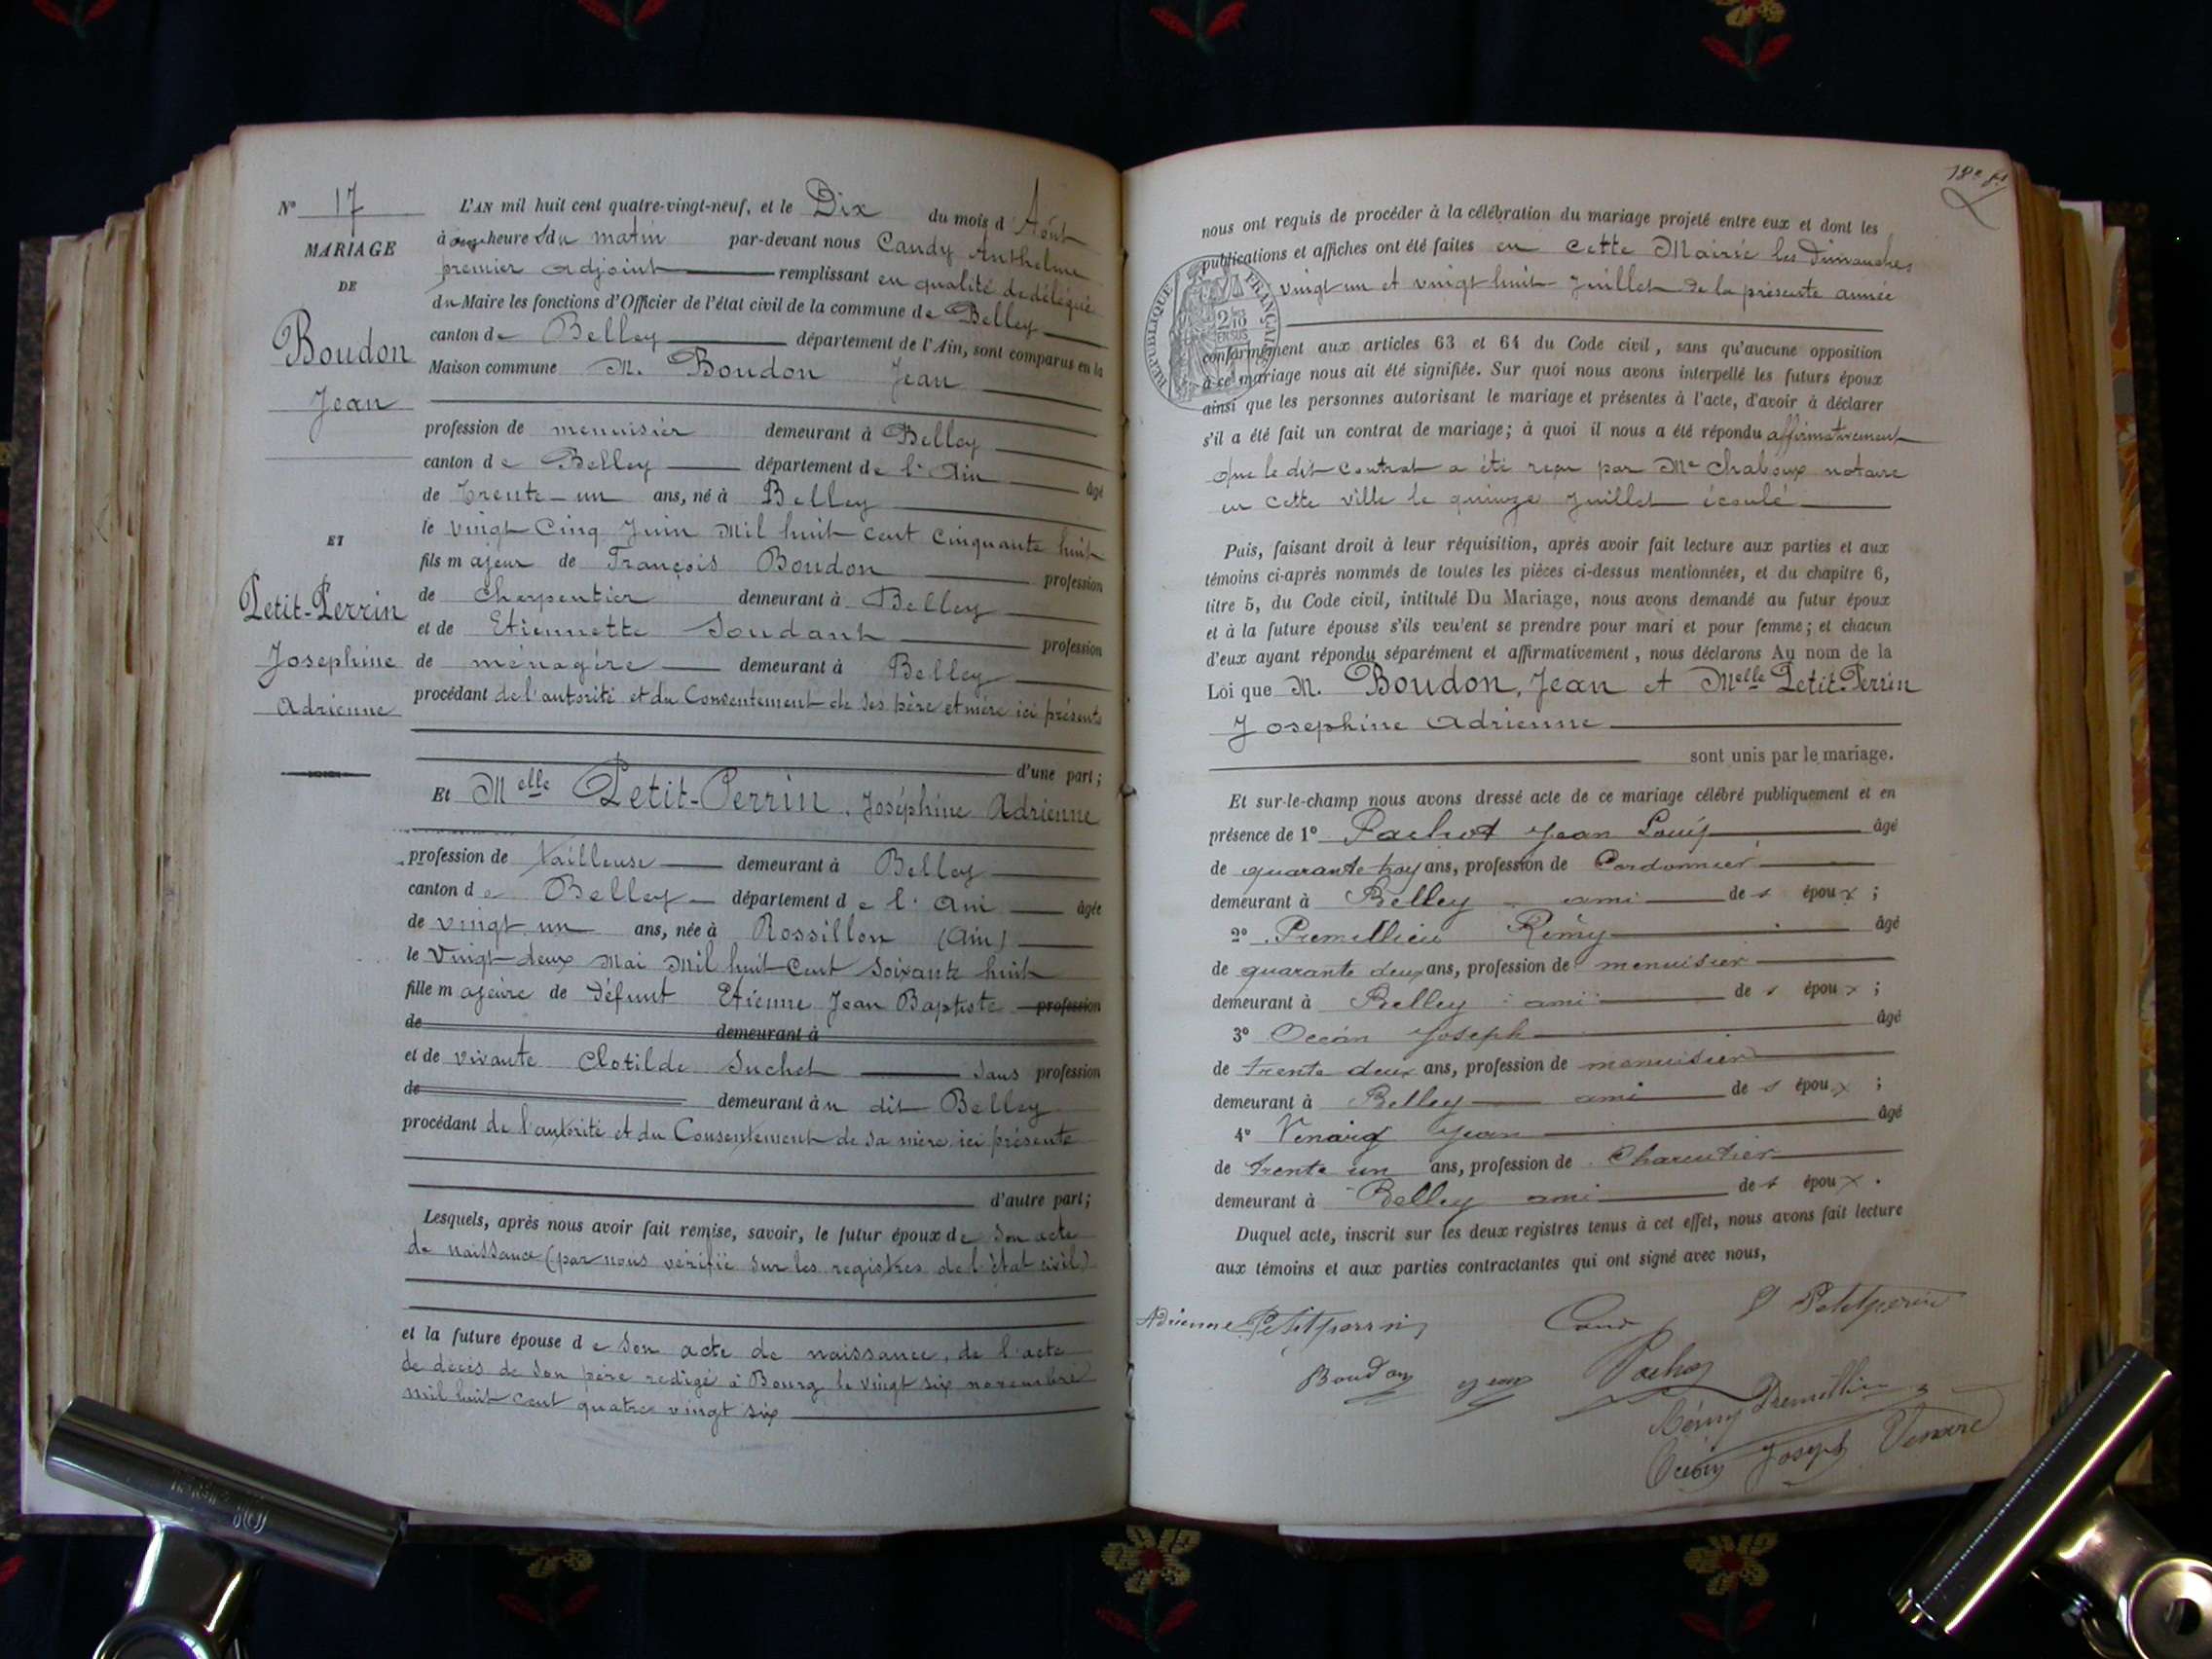 N° 17
MARIAGE
DE
Boudon
Jean
ET
Petit-Perrin
Josephine
Adrienne
L'AN mil huit cent quatre-vingt-neuf, et le Dix du mois d'Août
à onze heures du matin par-devant nous Candy Anthelme
premier adjoint remplissant en qualité de délégué
du Maire les fonctions d'Officier de l'état civil de la commune de Belley
canton de Belley département de l'Ain, sont comparus en la
Maison commune M. Boudon Jean
profession de menuisier demeurant à Belley
canton de Belley département de l'Ain âgé
de trente-un ans, né à Belley
le vingt Cinq Juin Mil huit cent Cinquante huit
fils majeur de François Boudon profession
de Charpentier demeurant à Belley
et de Etiennette Soudant profession
de ménagère demeurant à Belley
procédant de l'autorité et du Consentement de ses père et mère ici présents
d'une part;
Et Melle Petit-Perrin, Joséphine Adrienne
profession de Tailleuse demeurant à Belley
canton de Belley département de l'Ain âgée
de vingt un ans, née à Rossillon (Ain)
le Vingt-deux Mai Mil huit Cent Soixante huit
fille majeure de défunt Etienne Jean Baptiste profession
de demeurant à
et de vivante Clotilde Suchet sans profession
de demeurant àu dit Belley
procédant de l'autorité et du Consentement de sa mère ici présente
d'autre part;
Lesquels, après nous avoir fait remise, savoir, le futur époux de son acte
de naissance (par nous vérifié sur les registres de l'état civil)
et la future épouse de son acte de naissance, de l'acte
de décès de son père redigé à Bourg le vingt six novembre
mil huit cent quatre vingt six
18e ft
nous ont requis de procéder à la célébration du mariage projeté entre eux et dont les
publications et affiches ont été faites en cette Mairie les Dimanches
vingt un et vingt huit Juillet de la présente année
RÉPUBLIQUE FRANÇAISE
2/10
EN SUS
conformément aux articles 63 et 64 du Code civil, sans qu'aucune opposition
à ce mariage nous ait été signifiée. Sur quoi nous avons interpellé les futurs époux
ainsi que les personnes autorisant le mariage et présentes à l'acte, d'avoir à déclarer
s'il a été fait un contrat de mariage; à quoi il nous a été répondu affirmativement
que le dit Contrat a été reçu par Me Chaboux notaire
en cette ville le quinze Juillet écoulé
Puis, faisant droit à leur réquisition, après avoir fait lecture aux parties et aux
témoins ci-après nommés de toutes les pièces ci-dessus mentionnées, et du chapitre 6,
titre 5, du Code civil, intitulé Du Mariage, nous avons demandé au futur époux
et à la future épouse s'ils veulent se prendre pour mari et pour femme; et chacun
d'eux ayant répondu séparément et affirmativement, nous déclarons Au nom de la
Loi que M. Boudon, Jean et Melle Petit-Perrin
Josephine Adrienne
sont unis par le mariage.
Et sur-le-champ nous avons dressé acte de ce mariage célébré publiquement et en
présence de 1° Pachot Jean Louis âgé
de quarante-trois ans, profession de Cordonnier
demeurant à Belley ami des époux;
2° Premillieu Rémy âgé
de quarante deux ans, profession de menuisier
demeurant à Belley ami des époux;
3° Joseph âgé
de trente deux ans, profession de menuisier
demeurant à Belley ami des époux;
4° Venard Jean âgé
de trente un ans, profession de Charcutier
demeurant à Belley ami des époux.
Duquel acte, inscrit sur les deux registres tenus à cet effet, nous avons fait lecture
aux témoins et aux parties contractantes qui ont signé avec nous,
Adrienne Petitperrin Candy Petitperrin
Boudon Jean Pachot
Rémy Premillieu
Joseph Venard